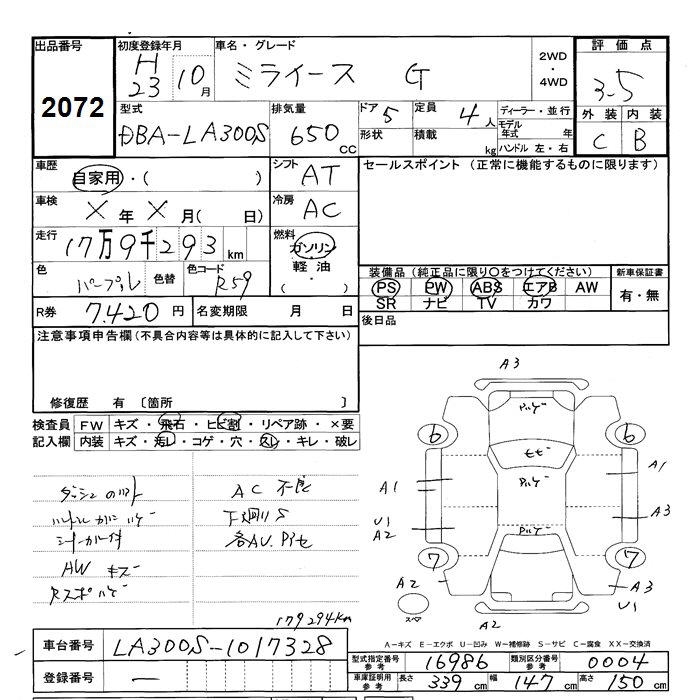 出品番号 初度登録年月 車名・グレード 2WD ・ 4WD 評価点
2072 H23 10月 ミライース G 3.5
型式 排気量 ドア 5 定員 4人 ディーラー・並行 外装 内装
DBA-LA300S 650 CC 形状 積載 kg モデル年式 年 ハンドル 左・右 C B
車歴 自家用・( ) シフト AT セールスポイント (正常に機能するものに限ります)
車検 X年X月( 日) 冷房 AC
走行 17万9千293 km 燃料 ガソリン・軽油・( )
色 パープル 色替 色コード R59 装備品 (純正品に限り○をつけてください) 新車保証書
PS PW ABS エアB AW 有・無
SR ナビ TV カワ
R券 7.420円 名変期限 月 日 後日品
注意事項申告欄(不具合内容等は具体的に記入して下さい)
修復歴 有 〔箇所 〕
検査員 FW キズ・飛石・ヒビ割・リペア跡・×要
記入欄 内装 キズ・汚レ・コゲ・穴・スレ・キレ・破レ
AC 不良
下廻りS
シートカバー付
HW キズ
179294km
A3
6 6
A1 A1
A3
U1
A2
7 7
A2 A3
U1
スペア A2
車台番号 LA300S-1017328
登録番号 —
A-キズ E-エクボ U-凹み W-補修跡 S-サビ C-腐食 XX-交換済
型式指定番号 参考 16986 類別区分番号 参考 0004
車庫証明用 参考 長さ 339cm 幅 147cm 高さ 150cm